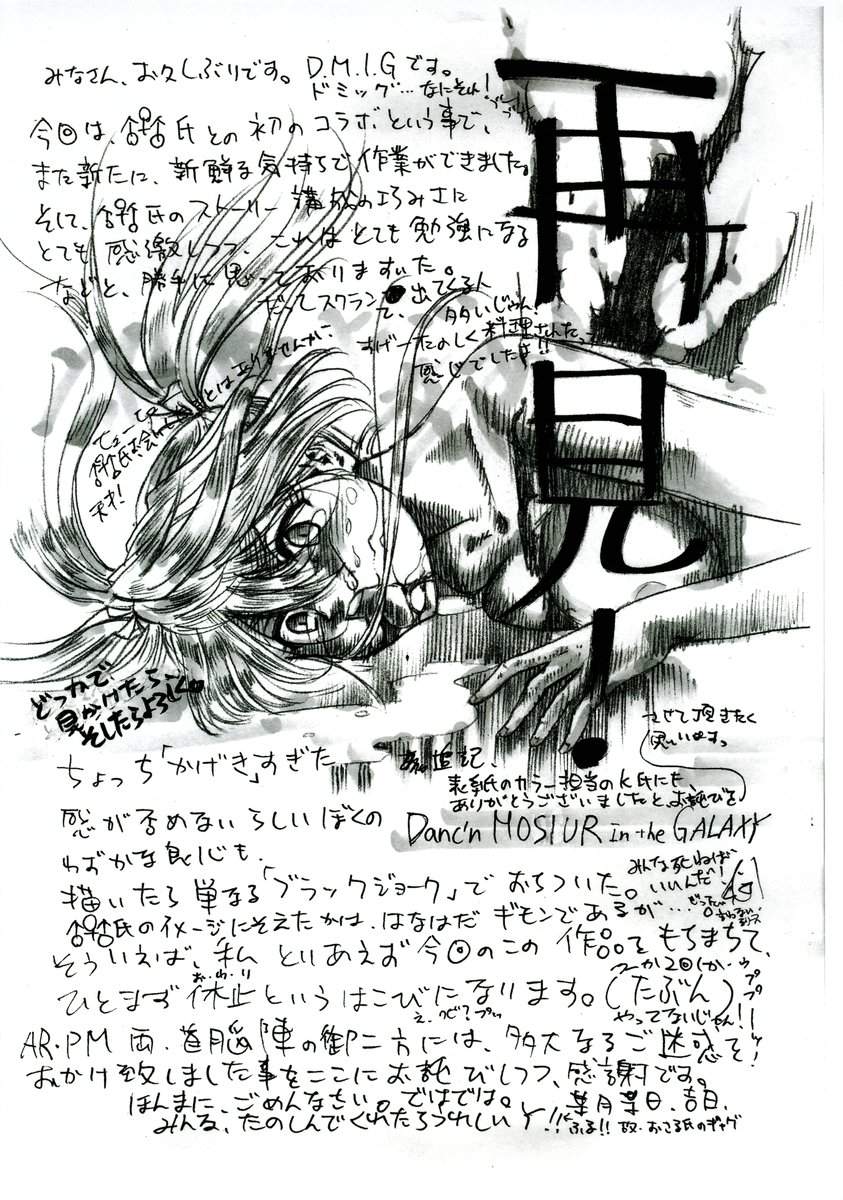 再見!
みなさん、お久しぶりです。D.M.I.Gです。
ドミッグ…なにそれ!
今回は、氏との初のコラボという事で、
また新たに、新鮮な気持ちで作業ができました。
そして、氏のストーリー構成の巧みさに
とても感激しつつ、これはとても勉強になる
などと、勝手に思っておりますいた。
だってスクラン 出てくる人
て、多いじゃん!
すげーたのしく料理されたって
感じでしたよ!!
とはエりませんが、
天才!
どっかで
見かけたら、
そしたらよろしく。
ちょっち「かげき」すぎた
感が否めないらしいぼくの
わずかな良心も、
描いたら単なる「ブラックジョーク」でおちついた。
氏のイメージにそえたかは、はなはだギモンであるが…。
そういえば、私 といあえず今回のこの作品をもちまちて、
お・わ・り
ひとまず休止というはこびになります。(たぶん)
追記、
表紙のカラー担当のK氏にも、
ありがとうございましたと、お詫びを
させて頂きたく
思います
Danc'n MOSIUR in the GALAXY
みんな死ねば
いいんだ!
やってないじゃん!!
AR・PM両・首脳陣の御二方には、多大なるご迷惑を
おかけ致しました事をここにお詫びしつつ、感謝です。
ほんまに、ごめんなさい。ではでは。
みんな、たのしんでくれたらうれしいY!!
葉月某日、吉日、